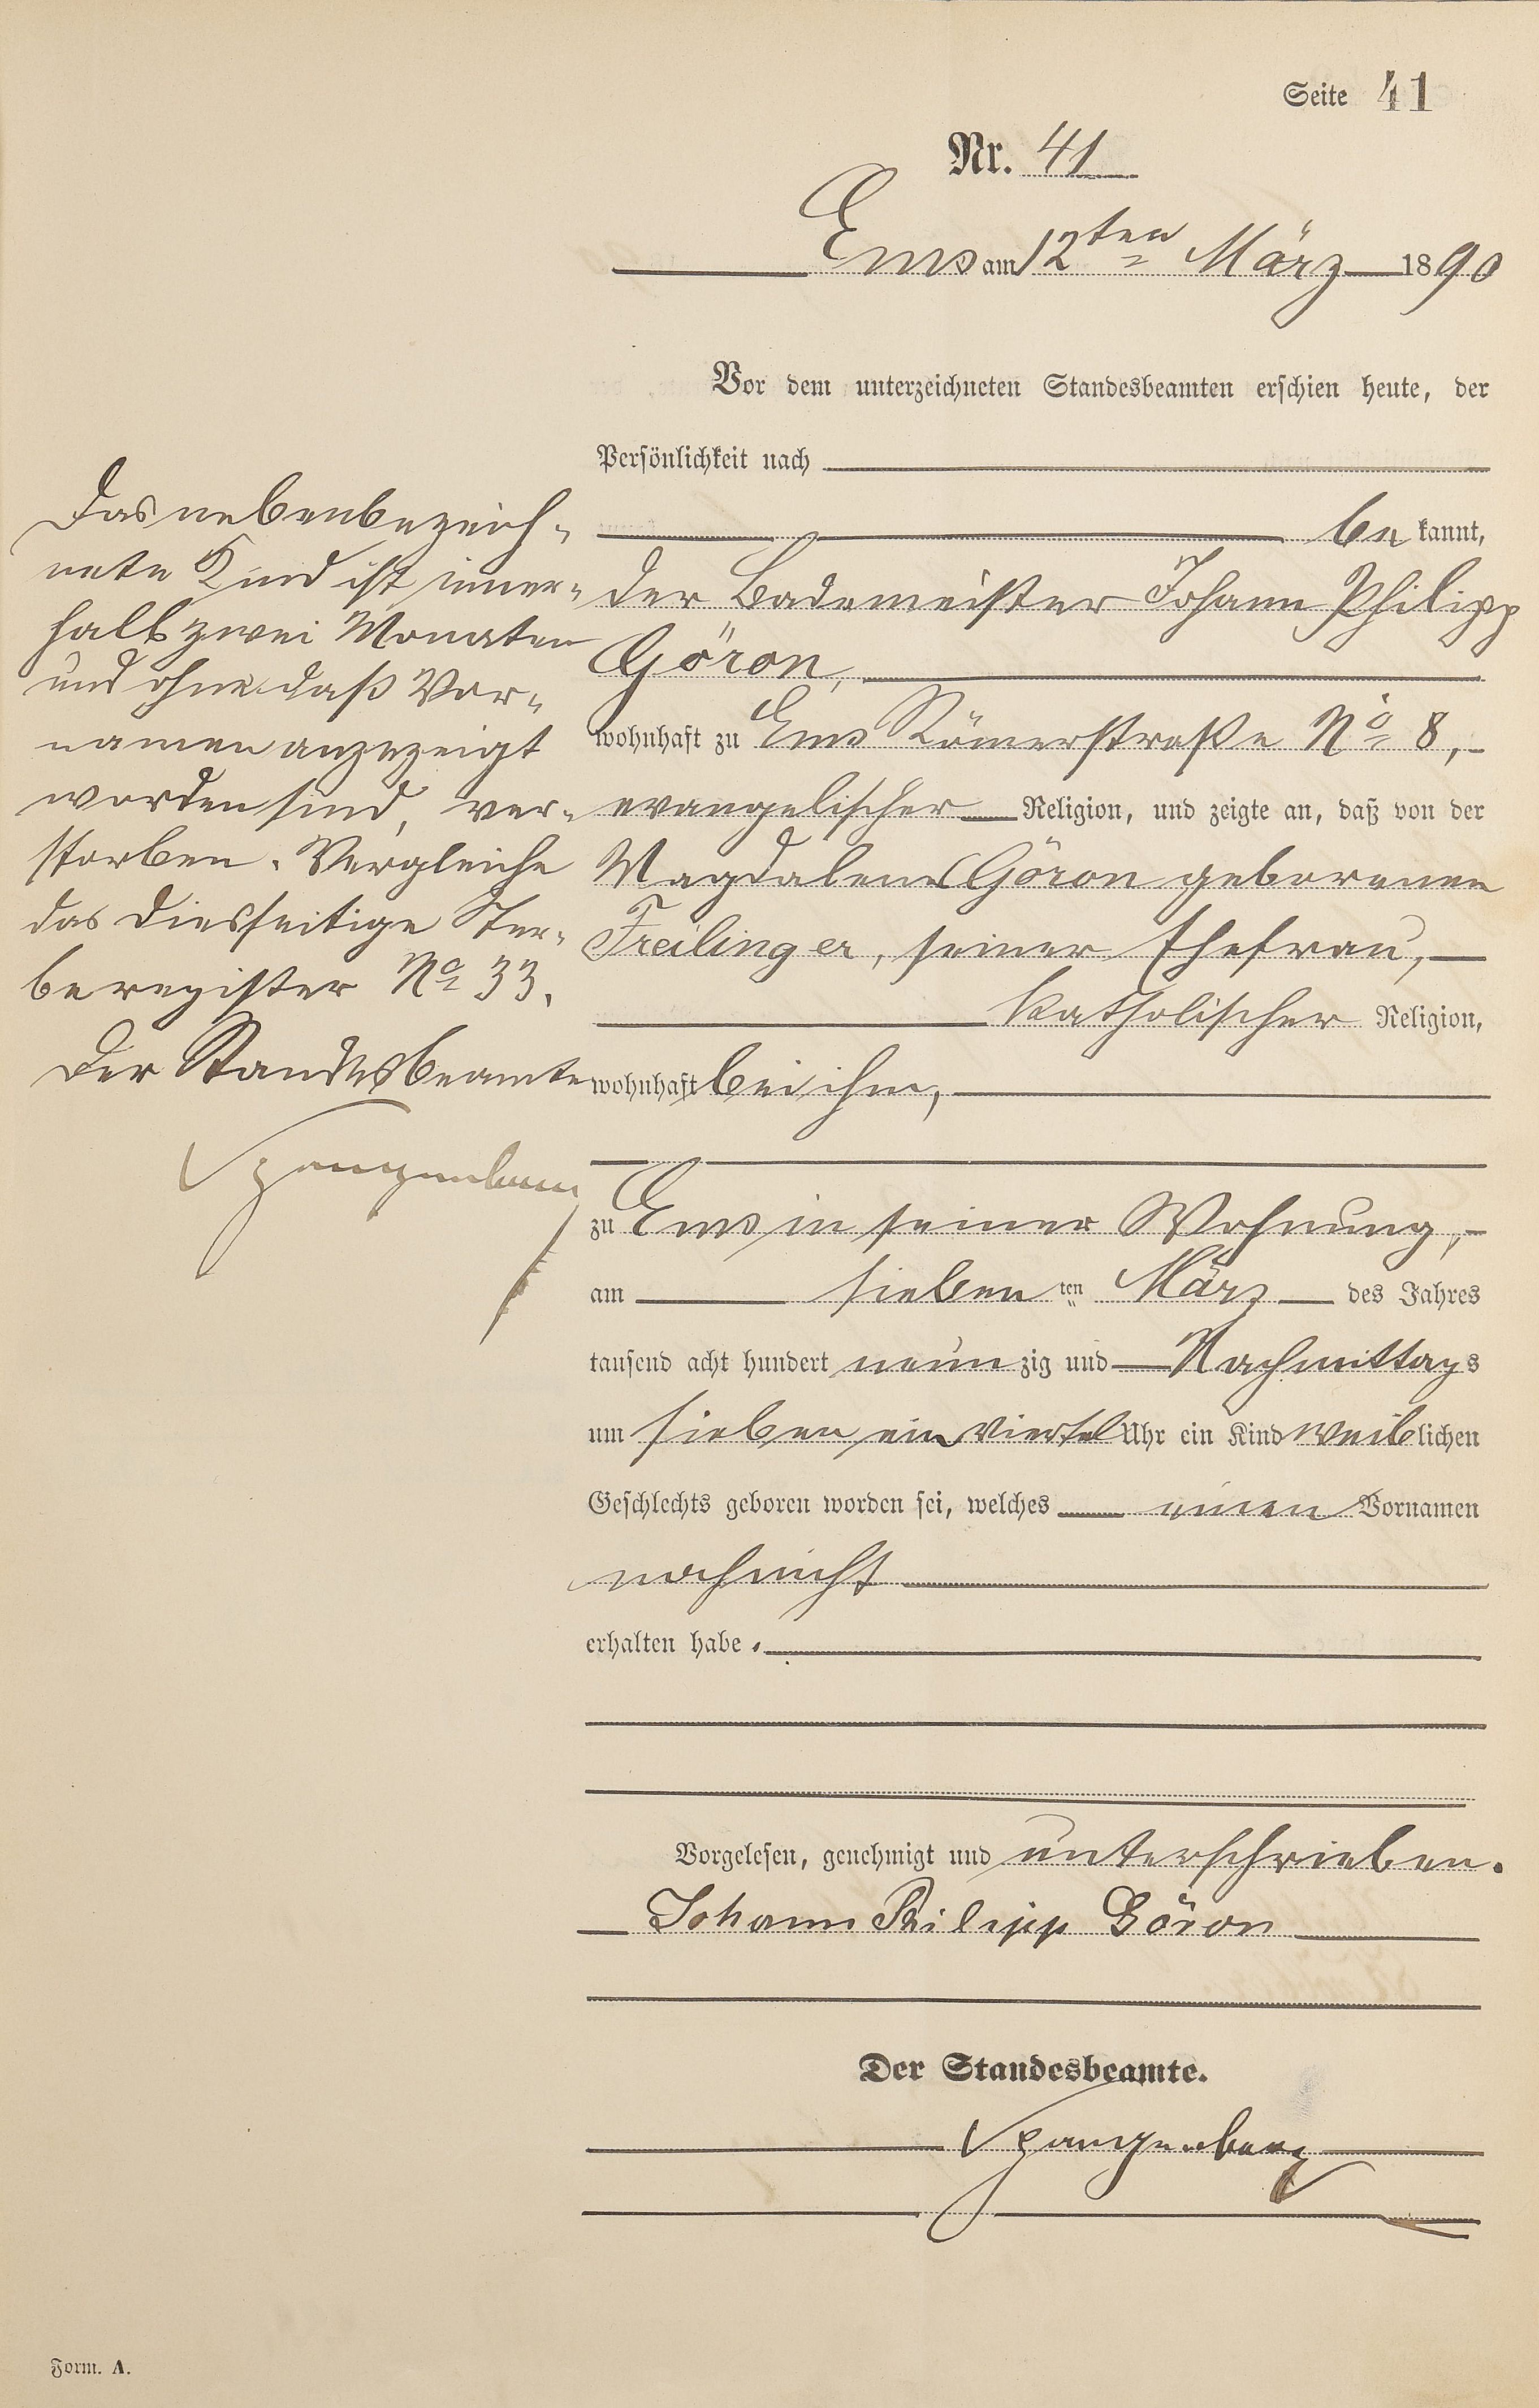 Seite 41
Nr. 41
Ems am 12ten März 1890
Vor dem unterzeichneten Standesbeamten erschien heute, der
Persönlichkeit nach
be kannt,
der Bademeister Johann Philipp
Göron,
wohnhaft zu Ems Römerstraße No 8,
evangelischer Religion, und zeigte an, daß von der
Magdalena Göron geborenen
Freilinger, seiner Ehefrau,
katholischer Religion,
wohnhaft bei ihm,
zu Ems in seiner Wohnung,
am sieben ten März des Jahres
tausend acht hundert neun zig und Nachmittags
um sieben ein viertel Uhr ein Kind weiblichen
Geschlechts geboren worden sei, welches einen Vornamen
noch nicht
erhalten habe.
Vorgelesen, genehmigt und unterschrieben.
Johann Philipp Göron
Der Standesbeamte.
Spangenberg
Das nebenbezeich-
nete Kind ist inner-
halb zwei Monaten
und ohne daß Vor-
namen angezeigt
worden sind, ver-
storben. Vergleiche
das diesseitige Ster-
beregister No 33.
Der Standesbeamte
Spangenberg
Form. A.